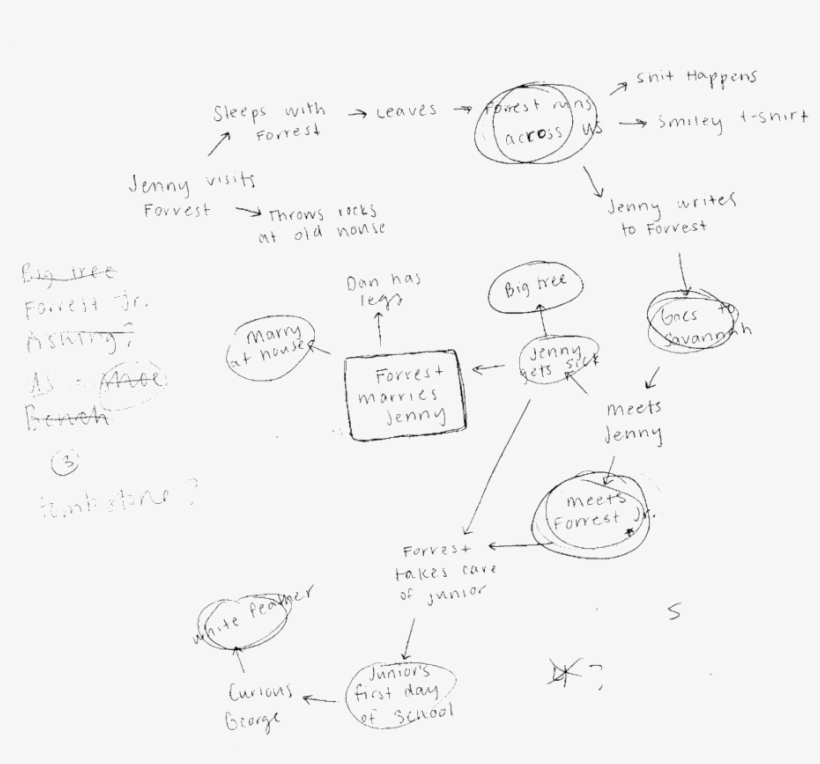 Shit Happens
Sleeps with
Forrest
Leaves
Forrest runs
across US
Smiley t-shirt
Jenny visits
Forrest
Throws rocks
at old house
Jenny writes
to Forrest
Big tree
Forrest Jr.
Bench
3
tombstone?
Dan has
legs
Big tree
Goes to
Savannah
Marry
at house
Jenny
gets sick
Forrest
marries
Jenny
meets
Jenny
meets
Forrest Jr.
Forrest
takes care
of junior
White Feather
S
?
Junior's
first day
of school
Curious
George